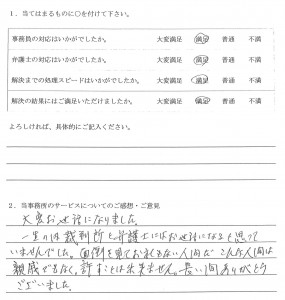 1．当てはまるものに○を付けて下さい。
事務員の対応はいかがでしたか。 大変満足 満足 普通 不満
弁護士の対応はいかがでしたか。 大変満足 満足 普通 不満
解決までの処理スピードはいかがでしたか。 大変満足 満足 普通 不満
解決の結果にはご満足いただけましたか。 大変満足 満足 普通 不満
よろしければ、具体的にご記入ください。
2．当事務所のサービスについてのご感想・ご意見
大変お世話になりました。
一生の内裁判所と弁護士にはお世話になると思って
いませんでした。面倒を見ておきれない人間だ こんな人間は
親戚でもなく、許すことは出来ません。長い間ありがとう
ございました。